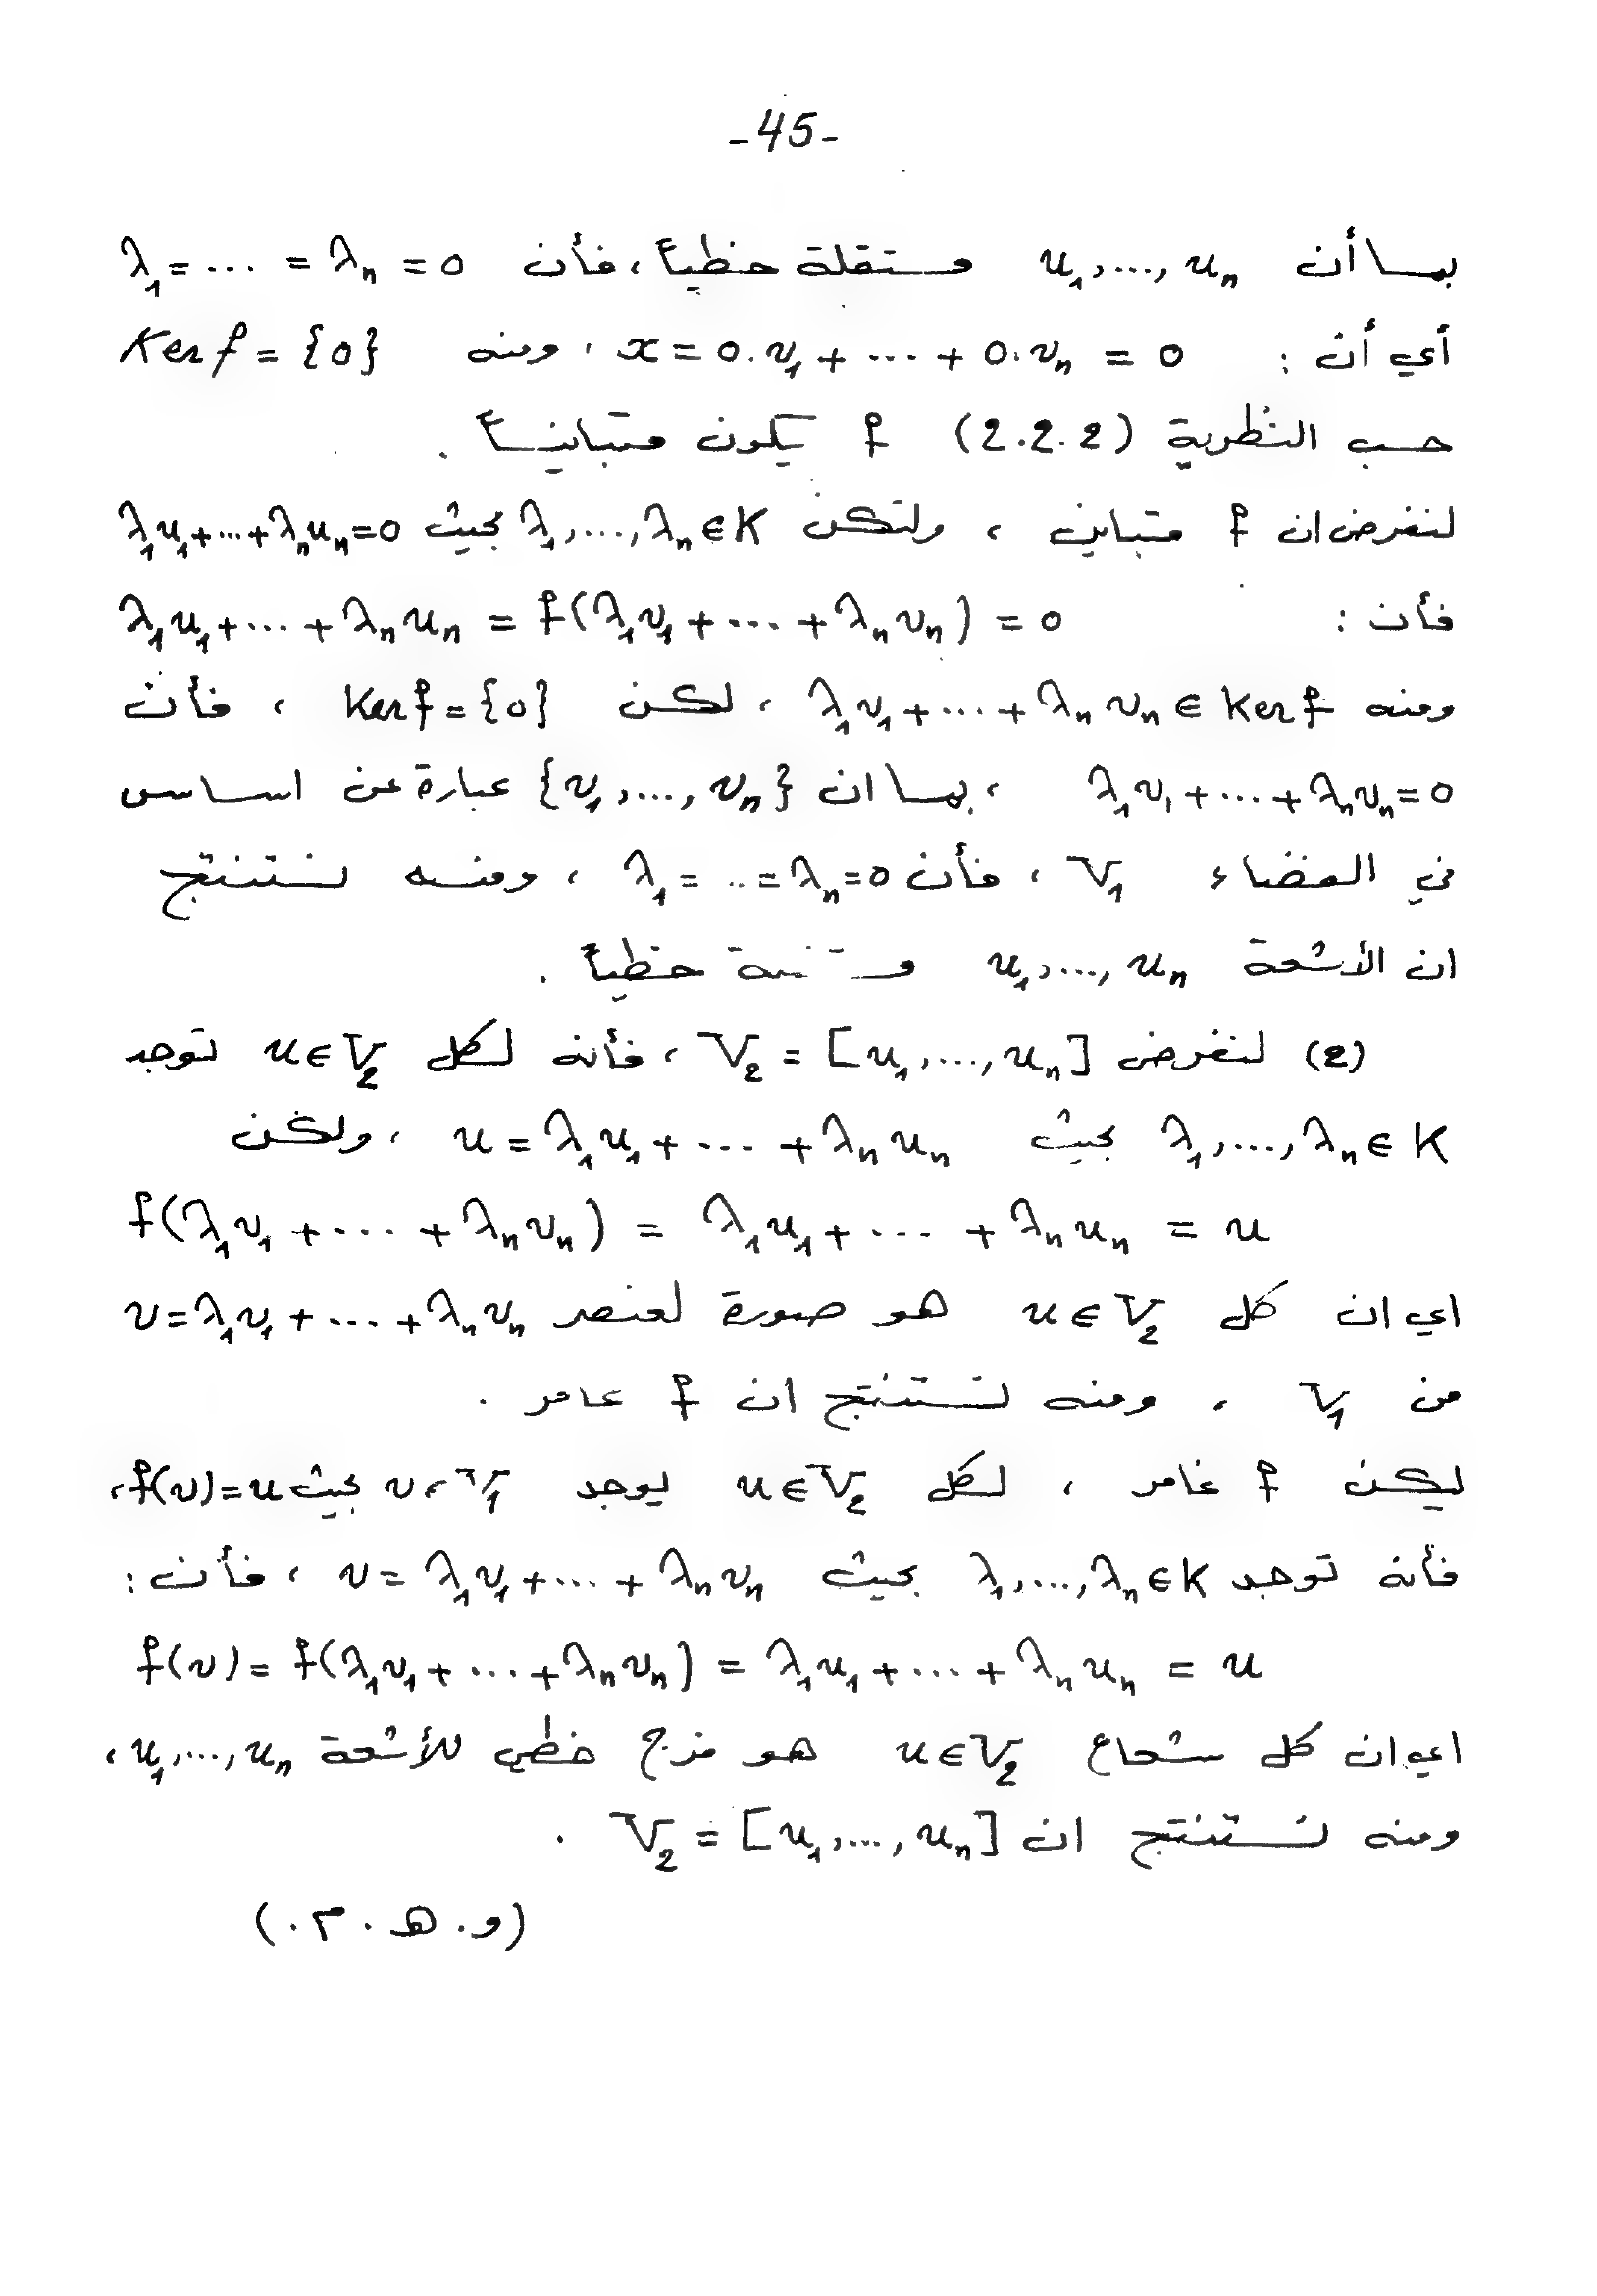 -45-
بما أن u₁,...,uₙ مستقلة خطياً، فأن λ₁=...=λₙ=0
أي أن : x=0.v₁+...+0.vₙ=0 ، ومنه Ker f={0}
حسب النظرية (2.2.2) f يكون متبايناً .
لنفرض ان f متباين ، ولتكن λ₁,...,λₙ∈K بحيث λ₁u₁+...+λₙuₙ=0
فأن : λ₁u₁+...+λₙuₙ = f(λ₁v₁+...+λₙvₙ) = 0
ومنه λ₁v₁+...+λₙvₙ ∈ Ker f ، لكن Ker f={0} ، فأن
λ₁v₁+...+λₙvₙ=0 ، بما ان {v₁,...,vₙ} عبارة عن اساس
في الفضاء V₁ ، فأن λ₁=..=λₙ=0 ، ومنه نستنتج
ان الأشعة u₁,...,uₙ خطياً .
(2) لنفرض V₂ = [u₁,...,uₙ] ، فأنه لكل u∈V₂ توجد
λ₁,...,λₙ∈K بحيث u=λ₁u₁+...+λₙuₙ ، ولكن
f(λ₁v₁+...+λₙvₙ) = λ₁u₁+...+λₙuₙ = u
اي ان كل u∈V₂ هو صورة لعنصر v=λ₁v₁+...+λₙvₙ
من V₁ ، ومنه نستنتج ان f عامر .
ليكن f غامر ، لكل u∈V₂ يوجد v، V₁ بحيث f(v)=u ،
فأنه توجد λ₁,...,λₙ∈K بحيث v=λ₁v₁+...+λₙvₙ ، فأن :
f(v)= f(λ₁v₁+...+λₙvₙ) = λ₁u₁+...+λₙuₙ = u
اي ان كل شعاع u∈V₂ هو مزج خطي للأشعة u₁,...,uₙ ،
ومنه نستنتج ان V₂ = [u₁,...,uₙ] .
(و. هـ. م.)